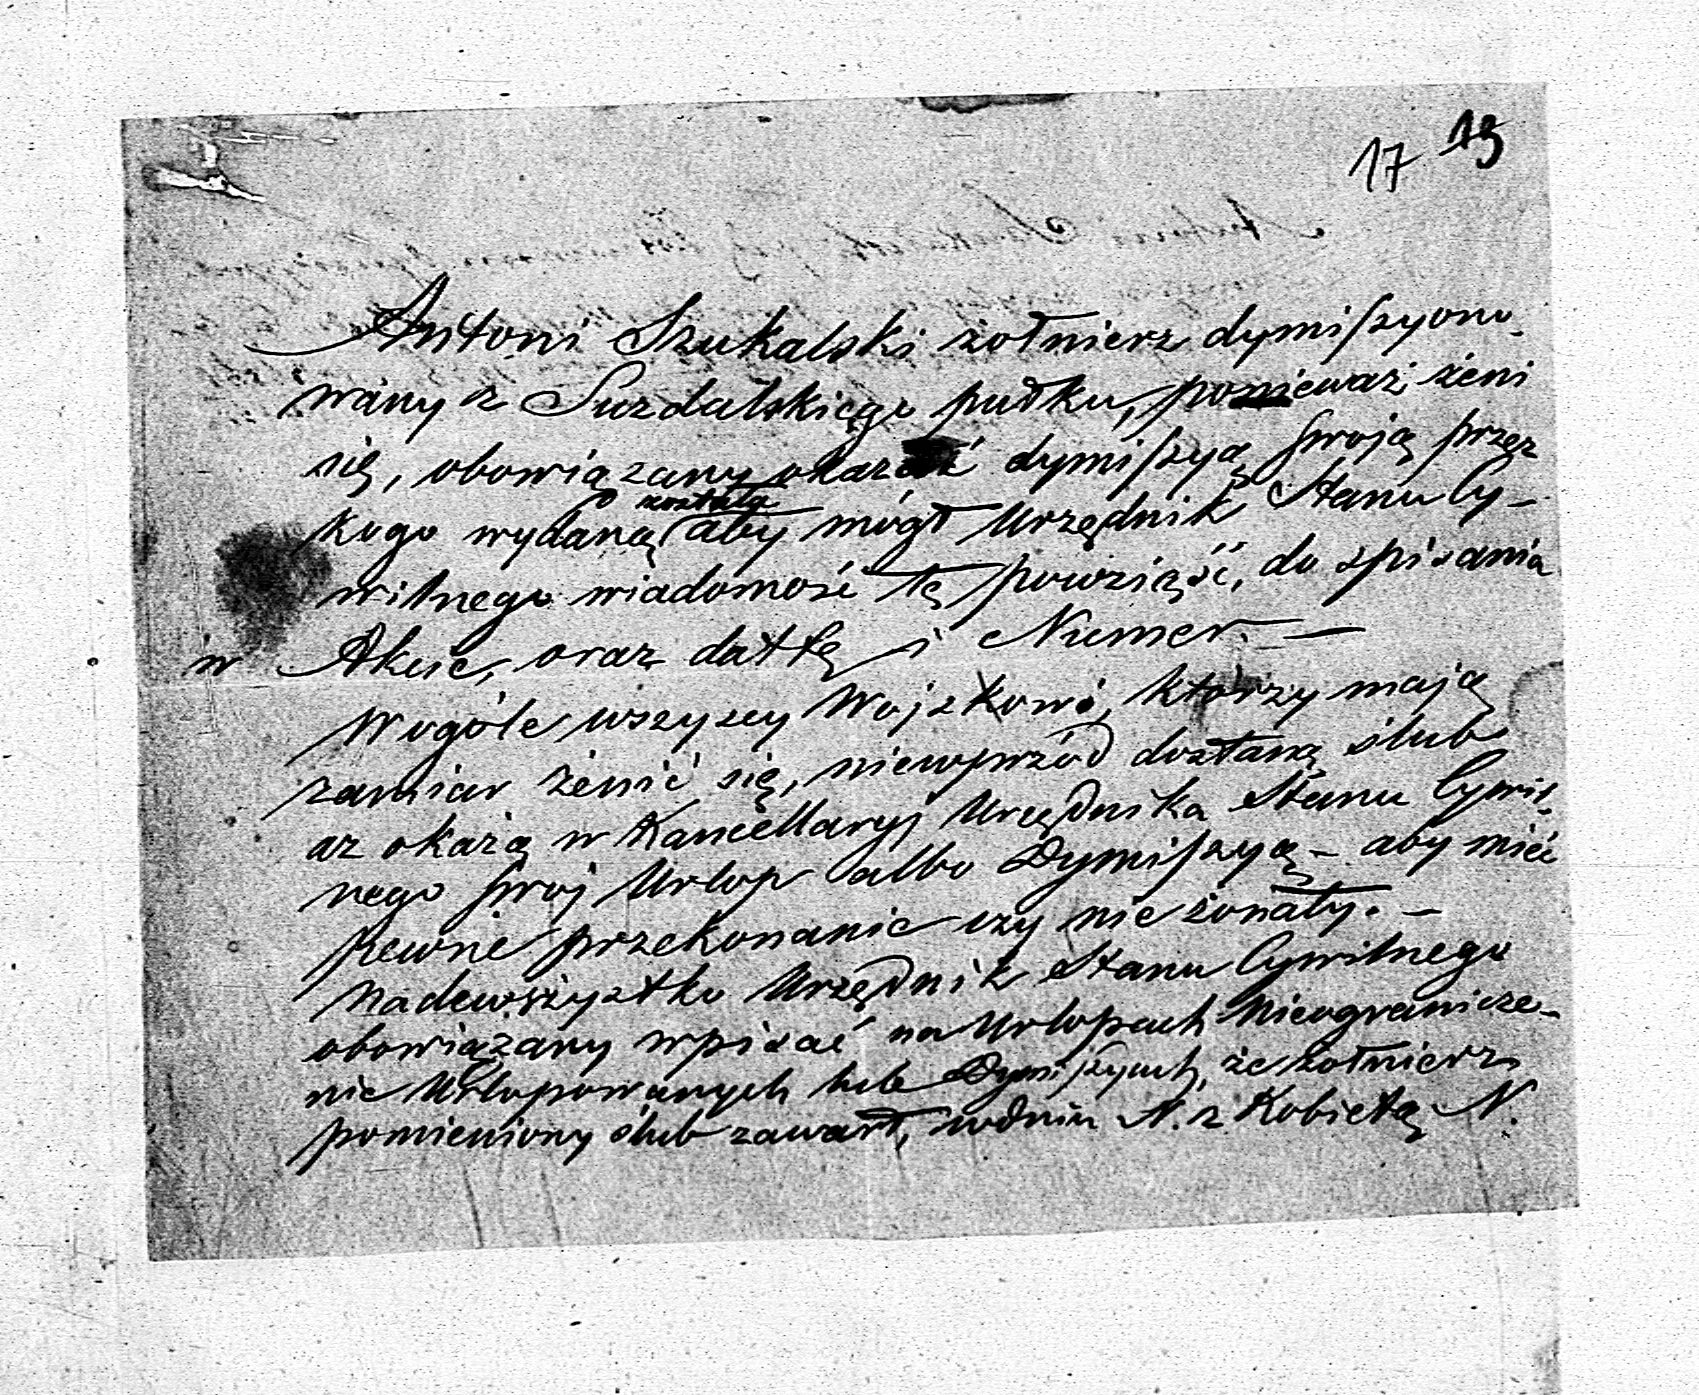 17 19
Antoni Szukalski żołnierz dymiszyono-
wány z Suzdalskiego pułku, ponieważ żeni
się, obowiązany okazać dymiszyą swoją przez
kogo wydaną została aby mógł Urzędnik Stanu Cy-
wilnego wiadomość tę powziąść, do spisania
w Akcie, oraz dattę i Numer. —
Wogóle wszyscy Wojskowi, którzy mają
zamiar żenić się, niewprzód dostaną ślub
az okażą w Kancellaryj Urzędnika Stanu Cywil-
nego swoj Urlop albo Dymiszyą – aby mieć
pewne przekonanie czy nie żonaty. —
Nadewszystko Urzędnik Stanu Cywilnego
obowiązany wpisać na Urlopach Nieogranicze-
nie Urlopowanych lub Dymiszyach, że żołnierz
pomieniony ślub zawarł, w dniu N. z Kobietą N.